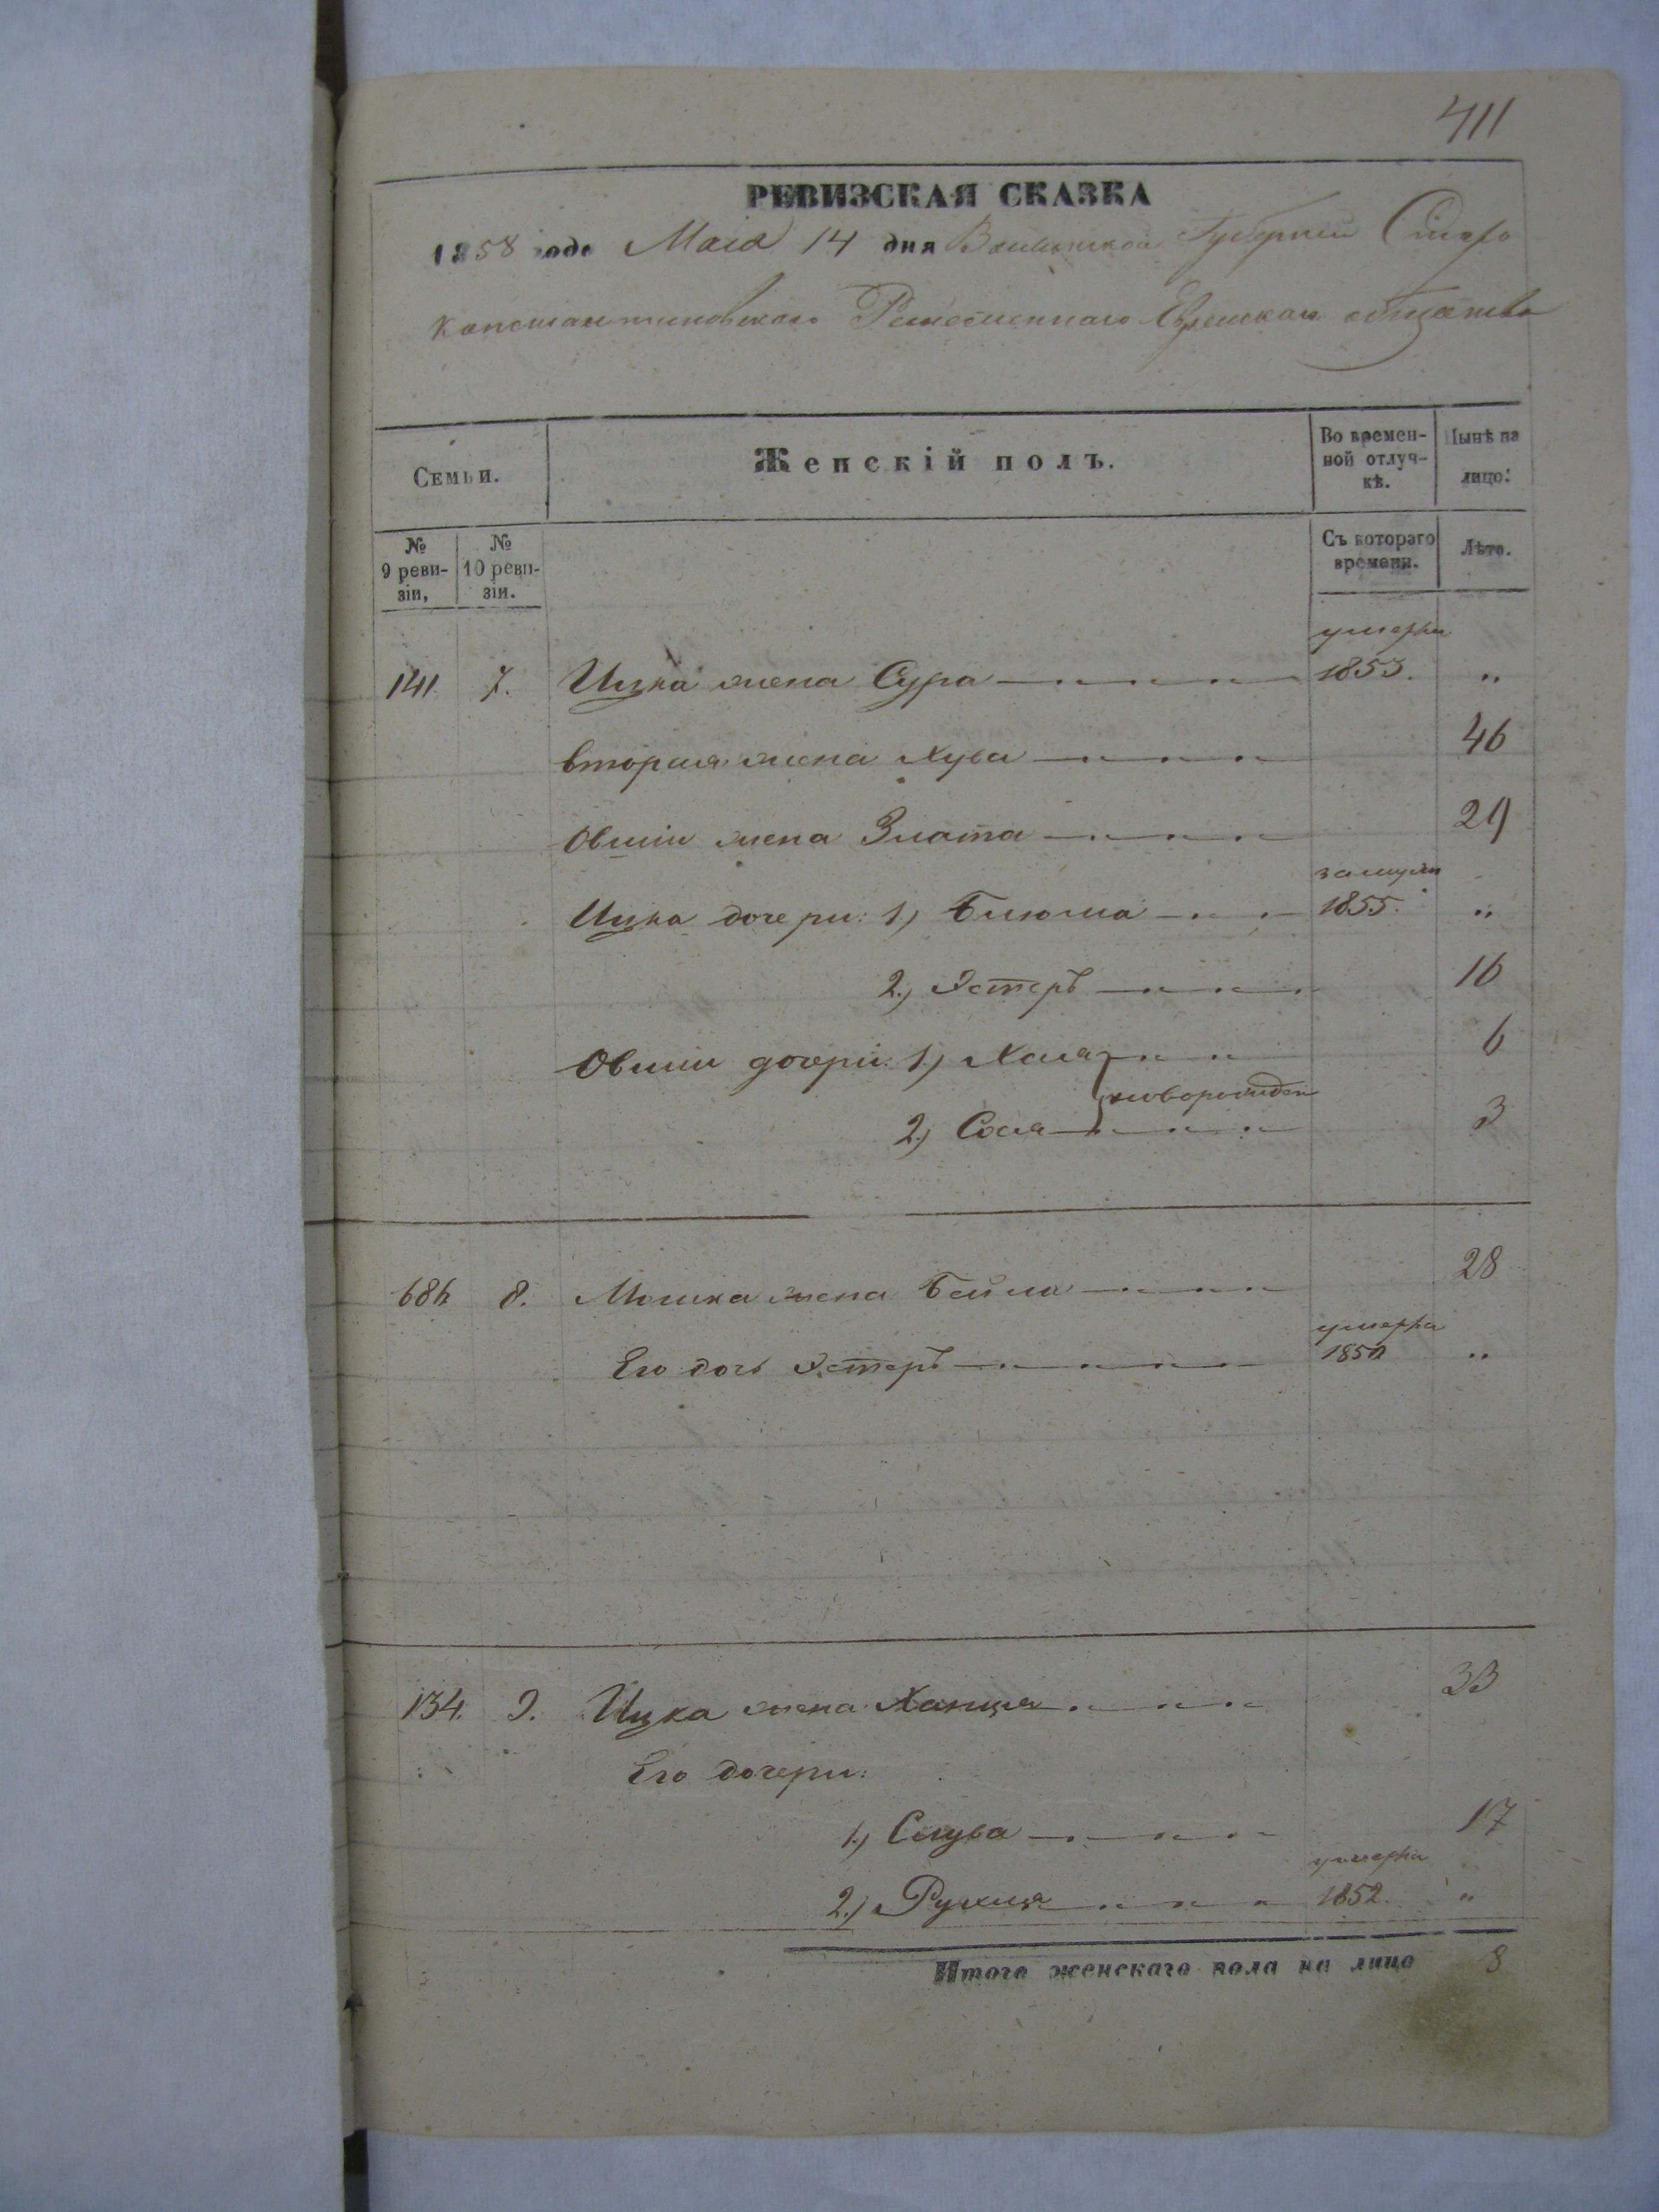 411
РЕВИЗСКАЯ СКАЗКА
1858 года Маiя 14 дня Волынской Губернiи Старо
константиновскаго Ремесленнаго Еврейскаго общества
Семьи. Женскiй полъ. Во времен-ной отлуч-кѣ. Нынѣ на лицо:
№ 9 реви-зiи, № 10 реви-зiи. Съ котораго времени. Лѣта.
умерла
141. 7. Ицка жена Сура 1853. "
вторая жена Хува 46
Овшiи жена Злата 29
замужем
Ицка дочери: 1) Блюма 1855. "
2) Эстеръ 16
Овшiи дочери: 1) Хая 6
новорожден
2) Сося 3
686 8. Мошка жена Бейла 28
умерла
Его дочь Эстеръ 1850 "
134. 9. Ицка жена Ханця 33
Его дочери:
1) Слува 17
умерла
2) Рухця 1852. "
Итого женскаго пола на лицо 8